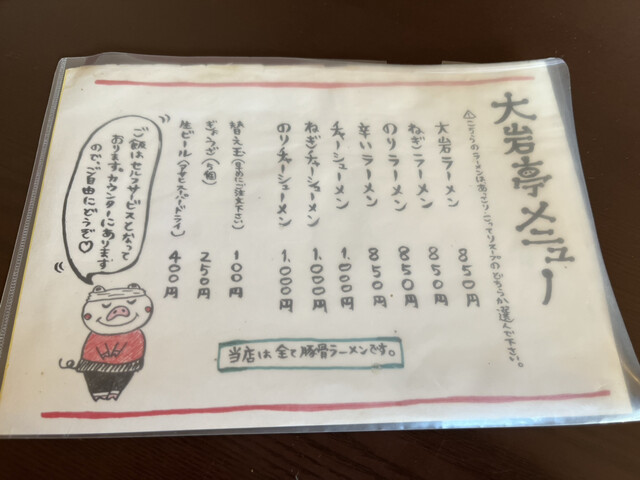 大岩亭メニュー
△こちらのラーメンはあっさり、こってりスープのどちらか選んで下さい。
大岩ラーメン 850円
ねぎラーメン 850円
のりラーメン 850円
辛いラーメン 850円
チャーシューメン 1,000円
ねぎチャーシューメン 1,000円
のりチャーシューメン 1,000円
替え玉(早めにご注文下さい) 100円
ぎょうざ(5個) 250円
生ビール(アサヒスーパードライ) 400円
当店は全て豚骨ラーメンです。
ご飯はセルフサービスとなって
おります。カウンターにあります
ので、ご自由にどうぞ♡